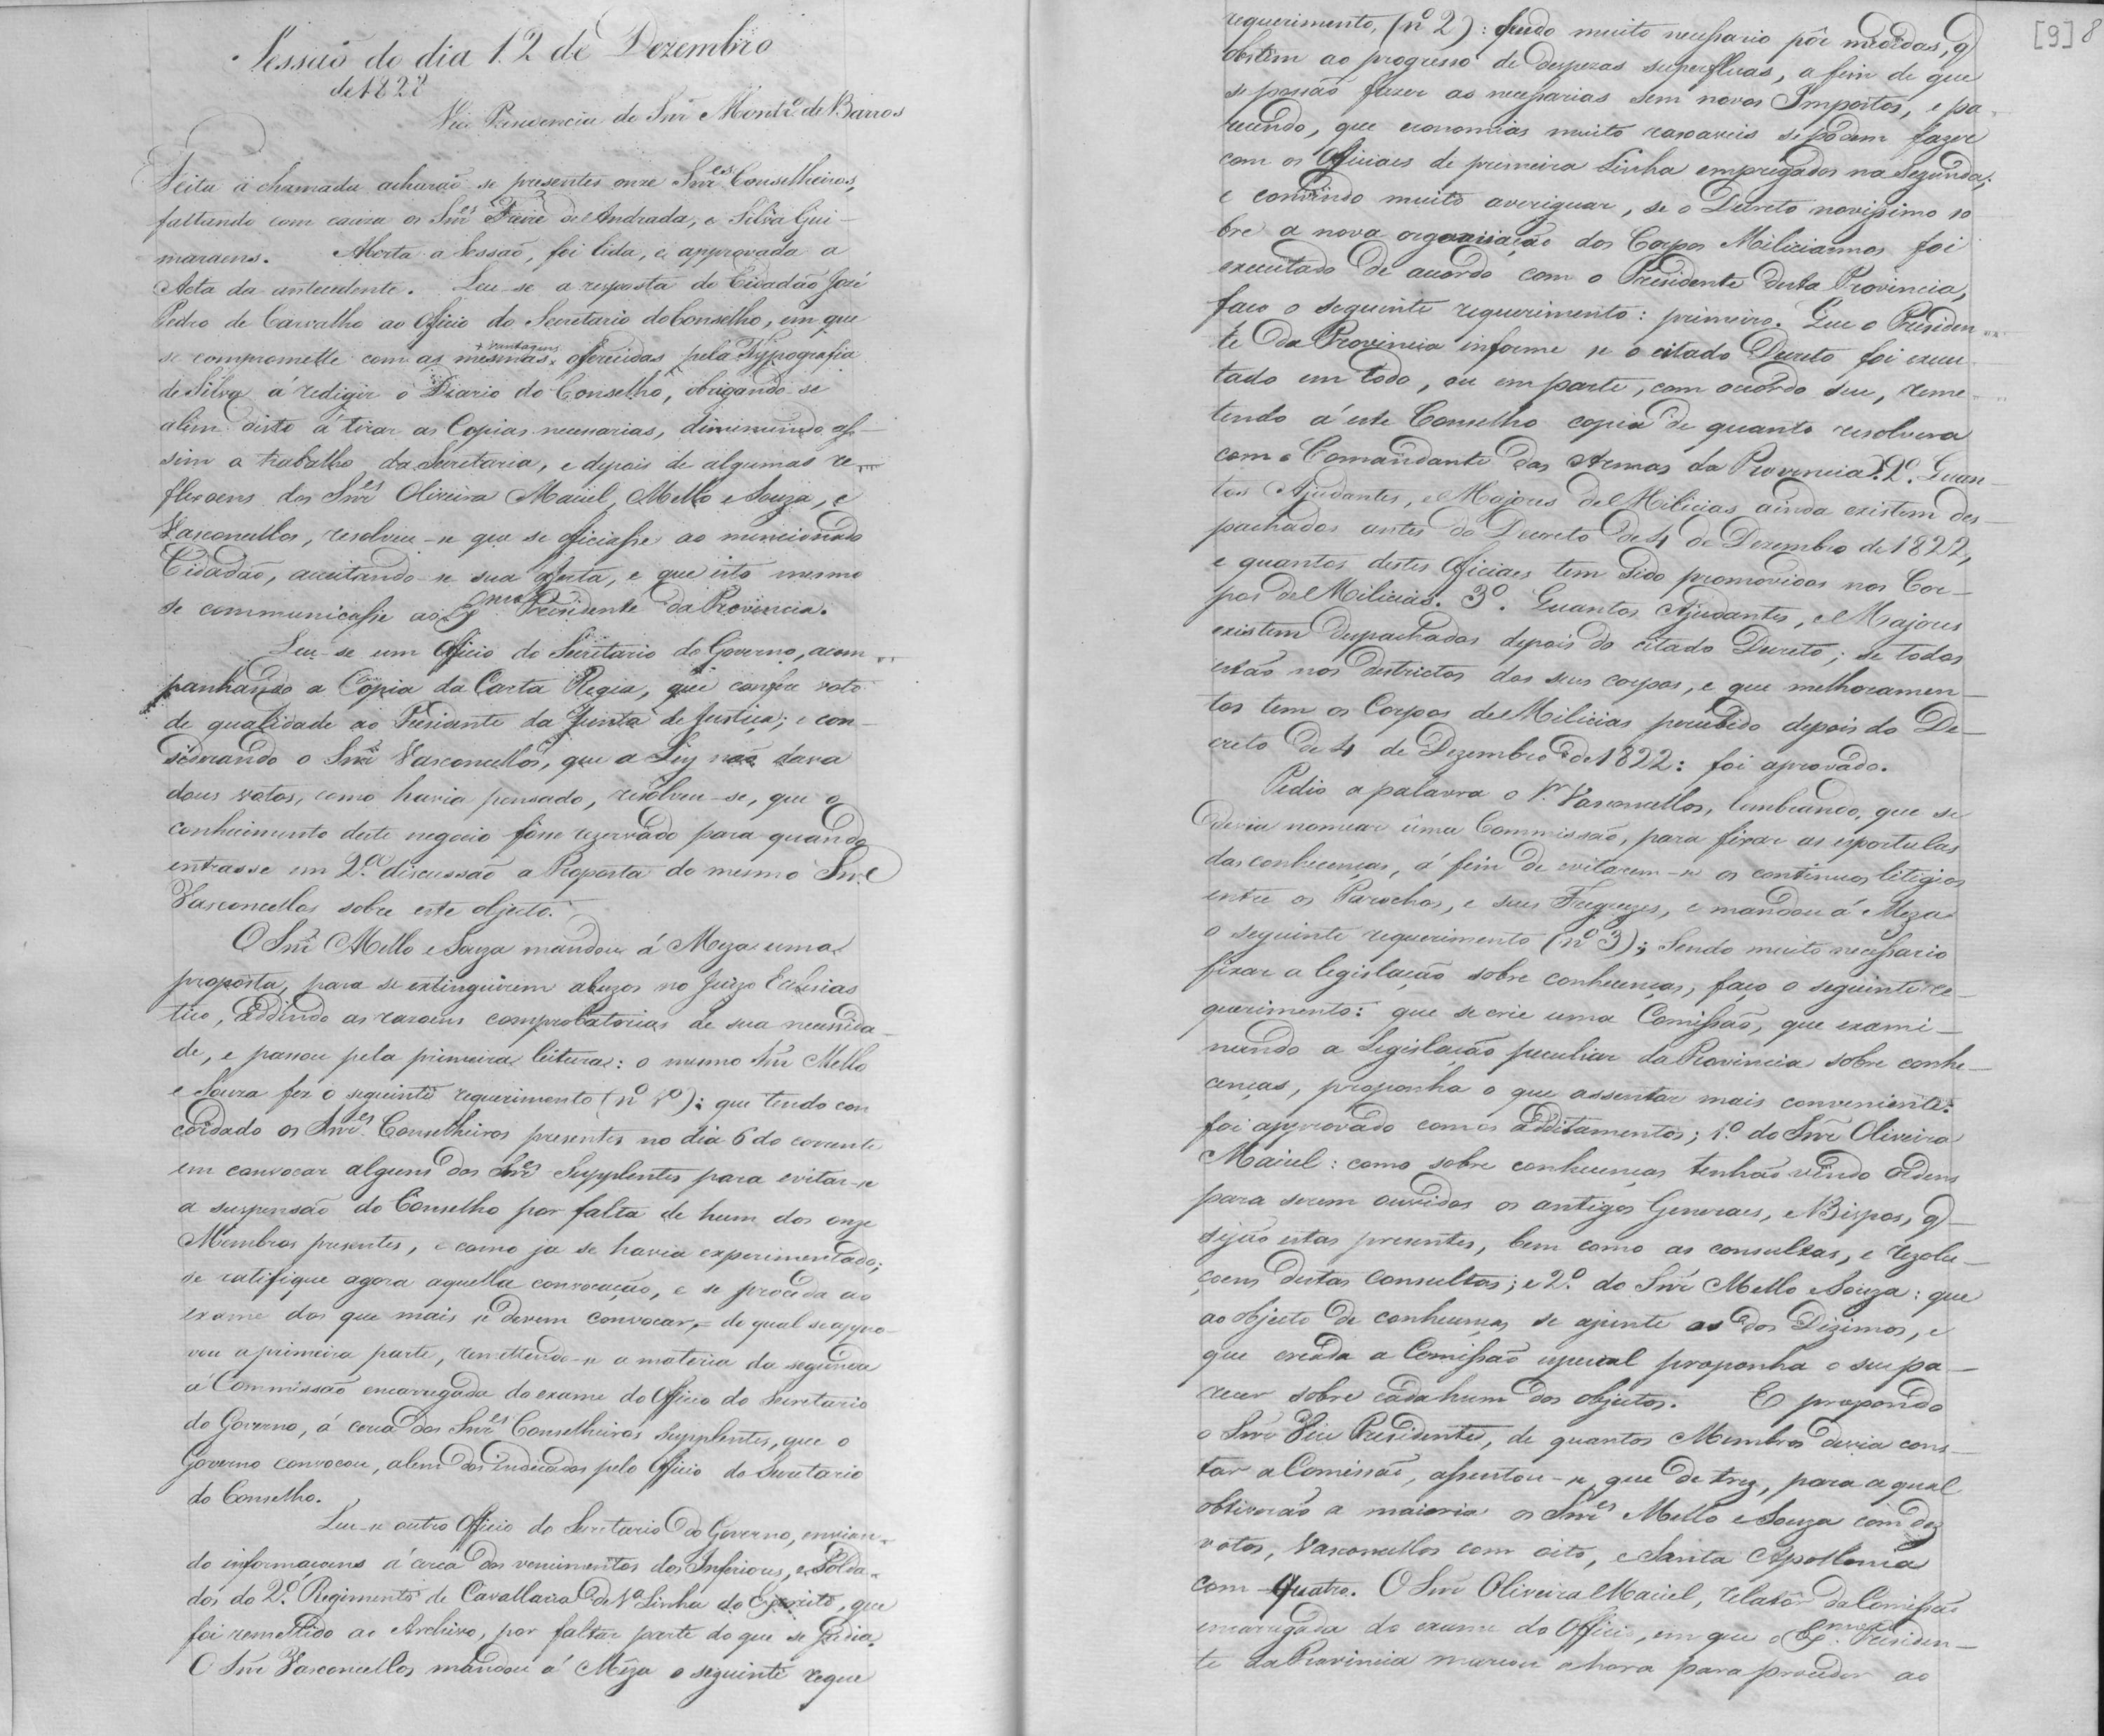 Sessão do dia 12 de Dezembro
de 1828
Vice Presidencia do Snr Montr.º de Barros
Feita a chamada acharão-se presentes onze Snres Conselheiros,
faltando com causa os Snres Freire de Andrada, e Silva Gui-
maraens. Aberta a Sessão, foi lida, e approvada a
Acta da antecedente. Leu-se a resposta do Cidadão José
Pedro de Carvalho ao Officio do Secretario do Conselho, em que
se compromette com as mesmas + vantagens offerecidas pela Typografia
de Silva á redigir o Diario do Conselho, obrigando-se
alem disto á tirar as Copias necessarias, diminuindo as-
sim o trabalho da Secretaria, e depois de algumas re-
flexoens dos Snres Oliveira Maciel, Mello e Souza, e
Vasconcellos, resolveu-se que se officiasse ao mencionado
Cidadão, acceitando-se sua oferta, e que isto mesmo
se communicasse ao Exmo Presidente da Provincia.
Leu-se um Officio do Secretario do Governo, acom-
panhando a Copia da Carta Regia, que confere voto
de qualidade ao Presidente da Junta de Justiça; e con-
siderando o Snr Vasconcellos, que a Ley não dava
dous votos, como havia pensado, resolveu-se, que o
conhecimento deste negocio fosse rezervado para quando
entrasse em 2.ª discussão a Proposta do mesmo Snr
Vasconcellos sobre este objecto.
O Snr Mello e Souza mandou á Meza uma
proposta, para se extinguirem abuzos no Juizo Eclesias
tico, addindo as razoens comprobatorias de sua necessida-
de, e passou pela primeira leitura: o mesmo Snr Mello
e Souza fez o seguinte requerimento (nº 1º): que tendo con
cordado os Snres Conselheiros presentes no dia 6 do corrente
em convocar alguns dos Snres Supplentes para evitar-se
a suspensão do Conselho por falta de hum dos onze
Membros presentes, e como ja se havia experimentado;
se ratifique agora aquella convocação, e se proceda ao
exame dos que mais se devem convocar,= do qual se appro-
vou a primeira parte, remettendo-se a materia da segunda
á Commissão encarregada do exame do Officio do Secretario
do Governo, á cerca dos Snres Conselheiros Supplentes, que o
Governo convocou, alem dos indicados pelo Officio do Secretario
do Conselho.
Leu-se outro Officio do Secretario do Governo, envian-
do informaçoens á cerca dos vencimentos dos Inferiores, e Solda-
dos do 2.º Regimento de Cavallaria de 1ª Linha do Exercito, que
foi remettido ao Archivo, por faltar parte do que se pedia.
O Snr Vasconcellos mandou á Meza o seguinte reque
[9] 8
requerimento, (nº 2): sendo muito necessario pôr medidas, q
obstem ao progresso de despezas superfluas, a fim de que
se possão fazer as necessarias sem novos Impostos, e pa-
recendo, que economias muito rasoaveis se pódem fazer
com os Officiaes de primeira Linha empregados na Segunda;
e convindo muito averiguar, se o Decreto novissimo so
bre a nova organisação dos Corpos Milicianos foi
executado de acordo com o Presidente desta Provincia,
faço o seguinte requerimento: primeiro. Que o Presiden-
te da Provincia informe se o citado Decreto foi execu
tado em todo, ou em parte, com acordo seu, reme-
tendo á este Conselho copia de quanto resolvera
com o Comandante das Armas da Provincia. 2º. Quan-
tos Ajudantes, e Majores de Milicias ainda existem des-
pachados antes do Decreto de 4 de Dezembro de 1822,
e quantos destes Officiaes tem sido promovidos nos Cor-
pos de Milicias. 3º. Quantos Ajudantes, e Majores
existem despachados depois do citado Decreto; se todos
estão nos destrictos dos seus corpos, e que melhoramen-
tos tem os Corpos de Milicias percebido depois do De-
creto de 4 de Dezembro de 1822: foi aprovado.
Pedio a palavra o Snr Vasconcellos, lembrando, que se
devia nomear uma Commissão, para fixar as esportulas
das conhecenças, á fim de evitarem-se os continuos litigios
entre os Parochos, e seus Freguezes, e mandou á Meza
o seguinte requerimento (nº 3); Sendo muito necessario
fixar a legislação sobre conhecenças, faço o seguinte re-
querimento: que se crie uma Comissão, que exami-
nando a Legislação peculiar da Provincia sobre conhe-
cenças, proponha o que assentar mais conveniente:
foi approvado com os additamentos; 1º. do Snr Oliveira
Maciel: como sobre conhecenças tenhão vindo Ordens
para serem ouvidos os antigos Generaes, e Bispos, q
sejão estas presentes, bem como as consultas, e rezolu-
çoens destas consultas; e 2º. do Snr Mello e Souza: que
ao objecto de conhecenças se ajunte os dos Dizimos, e
que creada a Comissão especial proponha o seu pa-
recer sobre cada hum dos objectos. E propondo
o Snr Vice Presidente, de quantos Membros devia cons-
tar a Comissão, assentou-se, que de trez, para a qual
obtiverão a maioria os Snres Mello e Souza com dez
votos, Vasconcellos com oito, e Santa Apollonia
com quatro. O Snr Oliveira Maciel, relator da Comissão
encarregada do exame do Officio, em que o Exmo Presiden-
te da Provincia marcou a hora para proceder ao